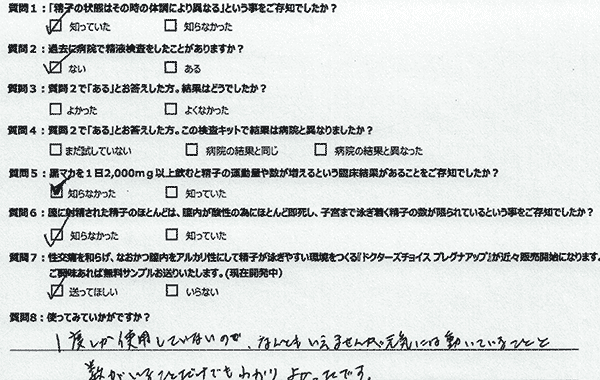 質問1：「精子の状態はその時の体調により異なる」という事をご存知でしたか？
知っていた　知らなかった
質問2：過去に病院で精液検査をしたことがありますか？
ない　ある
質問3：質問2で「ある」とお答えした方。結果はどうでしたか？
よかった　よくなかった
質問4：質問2で「ある」とお答えした方。この検査キットで結果は病院と異なりましたか？
まだ試していない　病院の結果と同じ　病院の結果と異なった
質問5：黒マカを1日2,000mg以上飲むと精子の運動量や数が増えるという臨床結果があることをご存知でしたか？
知らなかった　知っていた
質問6：膣に射精された精子のほとんどは、膣内が酸性の為にほとんど即死し、子宮まで泳ぎ着く精子の数が限られているという事をご存知でしたか？
知らなかった　知っていた
質問7：性交痛を和らげ、なおかつ膣内をアルカリ性にして精子が泳ぎやすい環境をつくる『ドクターズチョイス プレグナアップ』が近々販売開始になります。
ご興味あれば無料サンプルお送りいたします。(現在開発中)
送ってほしい　いらない
質問8：使ってみていかがですか？
1度しか使用していないので、なんともいえませんが元気には動いていることと
数がいることだけでもわかりよかったです。